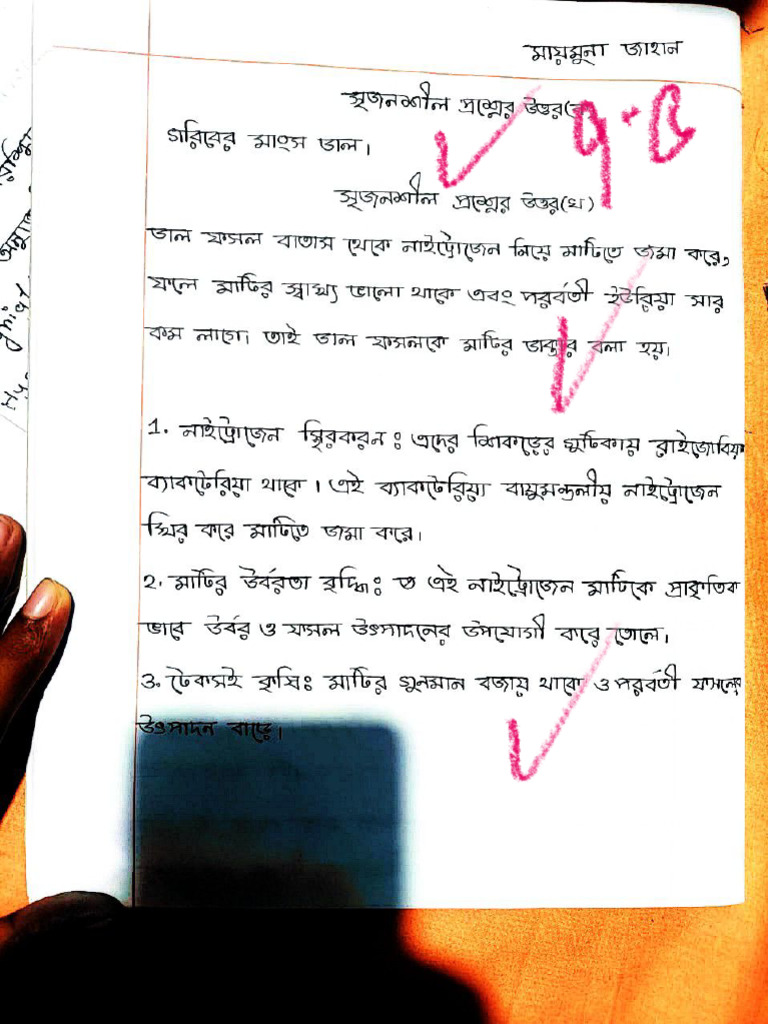 মায়মুনা জাহান
সৃজনশীল প্রশ্নের উত্তর(ক)
গরিবের মাংস ডাল।
সৃজনশীল প্রশ্নের উত্তর(খ)
ডাল ফসল বাতাস থেকে নাইট্রোজেন নিয়ে মাটিতে জমা করে,
ফলে মাটির স্বাস্থ্য ভালো থাকে এবং পরর্বতী ইউরিয়া সার
কম লাগে। তাই ডাল ফসলকে মাটির ডাক্তার বলা হয়।
1. নাইট্রোজেন স্থিরকরন: এদের শিকড়ের গুটিকায় রাইজোবিয়া
ব্যাকটেরিয়া থাকে। এই ব্যাকটেরিয়া বায়ুমন্ডলীয় নাইট্রোজেন
স্থির করে মাটিতে জমা করে।
2. মাটির উর্বরতা বৃদ্ধি: এই নাইট্রোজেন মাটিকে প্রাকৃতিক
ভাবে উর্বর ও ফসল উৎপাদনের উপযোগী করে তোলে।
3. টেকসই কৃষি: মাটির গুনমান বজায় থাকে ও পরর্বতী ফসলের
উৎপাদন বাড়ে।